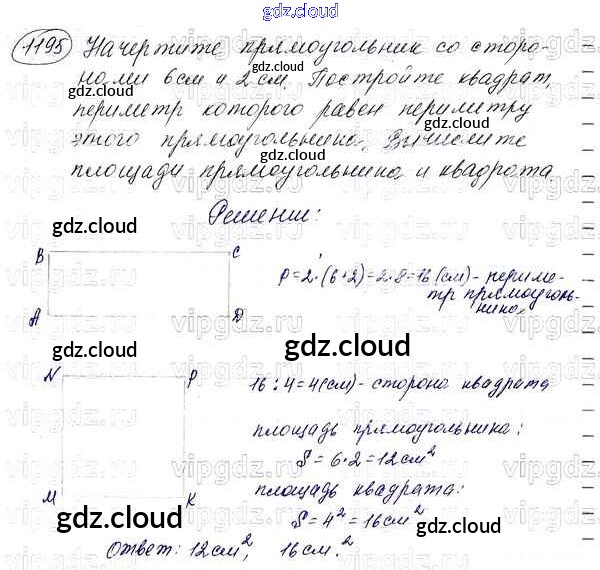 gdz.cloud
1195 Начертите прямоугольник со сторо-
нами 6 см и 2 см. Постройте квадрат,
периметр которого равен периметру
этого прямоугольника. Вычислите
площади прямоугольника и квадрата
Решение:
gdz.cloud
B C
P = 2·(6+2) = 2·8 = 16 (см) - периме-
тр прямоуголь-
ника.
A D
gdz.cloud
N P
16 : 4 = 4 (см) - сторона квадрата
площадь прямоугольника:
S = 6·2 = 12 см²
площадь квадрата:
M K
S = 4² = 16 см²
gdz.cloud
Ответ: 12 см², 16 см.²